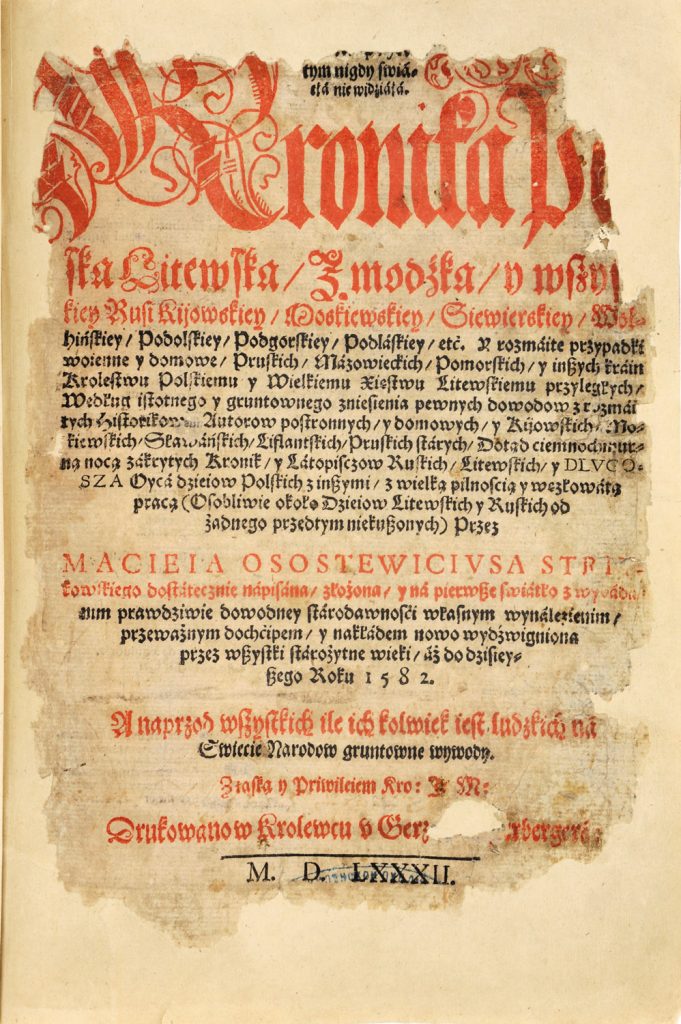 tym nigdy świá-
tłá nie widźiáłá.
Kronika Po
ska Litewska / Z
̇modźka / y wszy
kiey Rusi Kijowskiey / Moskiewskiey / Siewierskiey / Woł-
hińskiey / Podolskiey / Podgorskiey / Podláskiey / etć. y rozmáite przypadki
woienne y domowe / Pruskich / Mázowieckich / Pomorskich / y inszych kráin
Krolestwu Polskiemu y Wielkiemu Xięstwu Litewskiemu przyległych /
Według istotnego y gruntownego zniesienia pewnych dowodow z rozmái
tych Historikow Autorow postronnych / y domowych / y Kijowskich / Mo-
kiewskich / Sławáńskich / Liflantskich / Pruskich stárych / Dotąd ciemnochmur-
ną nocą zákrytych Kronik / y Látopisczow Ruskich / Litewskich / y DLVGO-
SZA Oycá dzieiow Polskich z inszymi / z wielką pilnością y węzłowátą
pracą (Osobliwie około Dzieiow Litewskich y Ruskich od
żadnego przedtym niekuszonych) Przez
MACIEIA OSOSTEWICIVSA STRI-
kowskiego dostátecznie nápisána / złożona / y ná pierwsze świátło z
nim prawdziwie dowodney stárodawnośći własnym wynálezienim /
przeważnym dochćipem / y nakłádem nowo wydźwigniona
przez wszystki stárożytne wieki / áż do dzisiey-
szego Roku 1582.
A naprzod wszystkich ile ich kolwiek iest ludzkich ná
Swiecie Narodow gruntowne wywody.
Z łáską y Priwileiem Kro: J. M:
Drukowano w Krolewcu v Gerz rbergerá
M. D. LXXXII.